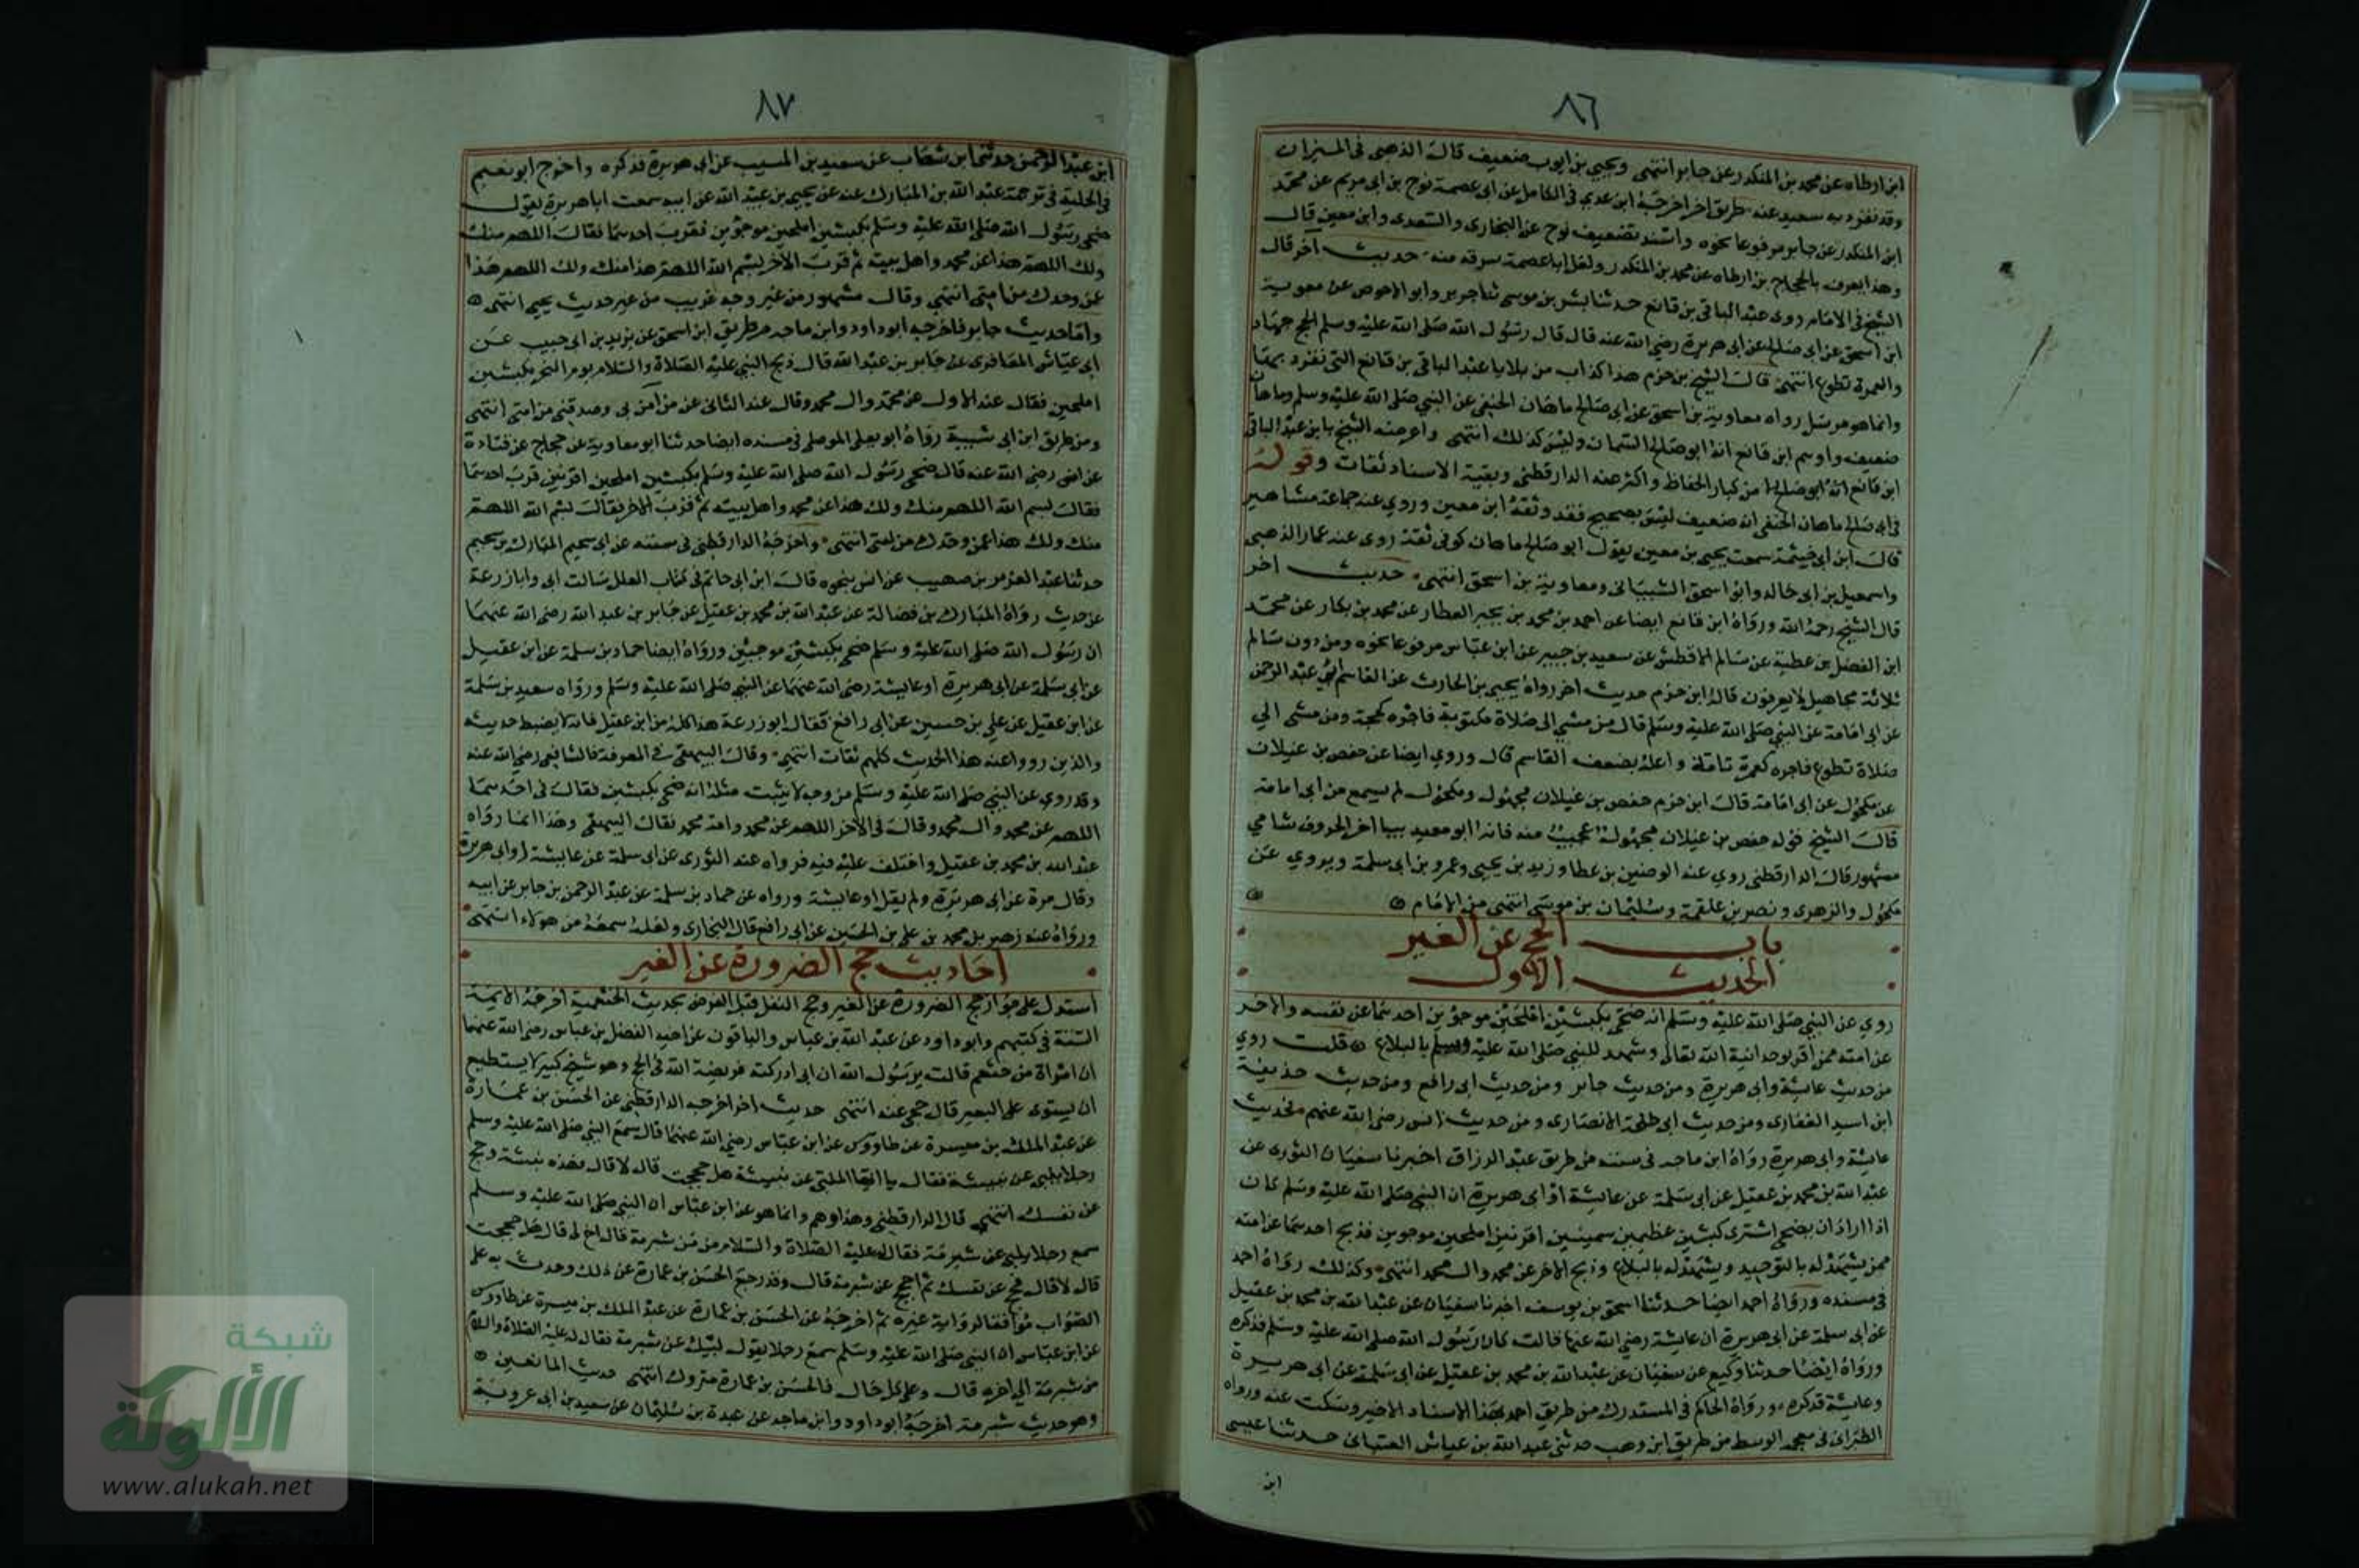 ٨٦
ابن ارطاه عن محمد بن المنكدر عن جابر انتهى ويحيى بن ايوب ضعيف قال الذهبى فى الميزان
وقد تفرد به سعيد عنه طريق اخر اخرجه ابن عدي فى الكامل عن ابى عصمة نوح بن ابى مريم عن محمد
ابن المنكدر عن جابر مرفوعا نحوه واسند تضعيف نوح عن البخارى والسعدى وابن معين قال
وهذا يعرف بالحجاج بن ارطاه عن محمد بن المنكدر ولعل ابا عصمة سرقه منه حديث آخر قال
الشيخ فى الامام روى عبد الباقى بن قانع حدثنا بشر بن موسى ثنا جرير وابو الاحوص عن معوية
ابن اسحق عن ابى صالح عن ابى هريرة رضى الله عنه قال قال رسول الله صلى الله عليه وسلم الحج جهاد
والعمرة تطوع انتهى قال الشيخ بن حزم هذا كذاب من بلايا عبد الباقى بن قانع التى تفرد بها
وانما هو مرسل رواه معاوية بن اسحق عن ابى صالح ماهان الحنفى عن النبى صلى الله عليه وسلم وماهان
ضعيف واوهم ابن قانع انه ابو صالح السمان وليس كذلك انتهى واعرضه الشيخ بان عبد الباقى
ابن قانع من كبار الحفاظ واكثر عنه الدارقطنى وبقية الاسناد ثقات وقوله
فى ابى صالح ماهان الحنفى انه ضعيف ليس بصحيح فقد وثقه ابن معين وروي عنه جماعة مشاهير
قال ابن ابى خيثمة سمعت يحيى بن معين يقول ابو صالح ماهان كوفى ثقة روى عنه عمار الذهبى
واسمعيل بن ابى خالد وابو اسحق الشيبانى ومعاوية بن اسحق انتهى حديث اخر
قال الشيخ رحمه الله ورواه ابن قانع ايضا عن احمد بن محمد بن بحير العطار عن محمد بن بكار عن محمد
ابن الفضل بن عطية عن سالم الافطس عن سعيد بن جبير عن ابن عباس مرفوعا نحوه ومن دون سالم
ثلاثة مجاهيل لا يعرفون قاله ابن حزم حديث اخر رواه يحيى بن الحارث عن القاسم ابى عبد الرحمن
عن ابى امامة عن النبى صلى الله عليه وسلم قال من مشى الى صلاة مكتوبة فاجره كحجة ومن مشى الي
صلاة تطوع فاجره كعمرة تامة واعله بضعف القاسم قال وروي ايضا عن حفص بن غيلان
عن مكحول عن ابى امامة قال ابن حزم حفص بن غيلان مجهول ومكحول لم يسمع من ابى امامة
قال الشيخ قوله حفص بن غيلان مجهول عجيب منه فانه ابو معيد بيا اخر الحروف شامي
مشهور قال الدارقطنى روي عنه الوضين بن عطا وزيد بن يحيى وعمرو بن ابى سلمة ويروي عن
مكحول والزهرى ونصر بن علقمة وسليمان بن موسى انتهى من الامام
باب الحج عن الغير
الحديث الاول
روي عن النبى صلى الله عليه وسلم انه ضحى بكبشين املحين موجوين احدهما عن نفسه والاخر
عن امته ممن اقر بوحدانية الله تعالى وشهد للنبى صلى الله عليه وسلم بالبلاغ قلت روي
من حديث عائشة وابى هريرة ومن حديث جابر ومن حديث ابى رافع ومن حديث حذيفة
ابن اسيد الغفارى ومن حديث ابى طلحة الانصارى ومن حديث انس رضى الله عنهم فحديث
عائشة وابى هريرة رواه ابن ماجه فى سننه من طريق عبد الرزاق اخبرنا سفيان الثورى عن
عبد الله بن محمد بن عقيل عن ابى سلمة عن عايشة او ابى هريرة ان النبى صلى الله عليه وسلم كان
اذا اراد ان يضحى اشترى كبشين عظيمين سمينين اقرنين املحين موجوين فذبح احدهما عن امته
ممن يشهد لله بالتوحيد ويشهد له بالبلاغ وذبح الاخر عن محمد وال محمد انتهى وكذلك رواه احمد
فى مسنده ورواه احمد ايضا حدثنا اسحق بن يوسف اخبرنا سفيان عن عبد الله بن محمد بن عقيل
عن ابى سلمة عن ابى هريرة ان عايشة رضى الله عنها قالت كان رسول الله صلى الله عليه وسلم فذكره
ورواه ايضا حدثنا وكيع عن سفيان عن عبد الله بن محمد بن عقيل عن ابى سلمة عن ابى هريرة
وعايشة فذكره ورواه الحاكم فى المستدرك من طريق احمد بهذا الاسناد الاخير وسكت عنه ورواه
الطبرانى فى معجمه الوسط من طريق ابن وهب حدثنى عبد الله بن عياش القتبانى حدثنا عيسى
ابن
٨٧
ابن عبد الرحمن حدثنى ابن شهاب عن سعيد بن المسيب عن ابى هريرة فذكره واخرج ابو نعيم
فى الحلية فى ترجمة عبد الله بن المبارك عنه عن يحيى بن عبيد الله عن ابيه سمعت ابا هريرة يقول
ضحى رسول الله صلى الله عليه وسلم بكبشين املحين موجوين فقرب احدهما فقال اللهم منك
ولك اللهم هذا عن محمد واهل بيته ثم قرب الآخر بسم الله اللهم هذا منك ولك اللهم هذا
عن وحدك من امتى انتهى وقال مشهور من غير وجه غريب من غير حديث يحيى انتهى
واما حديث جابر فاخرجه ابو داود وابن ماجه من طريق ابن اسحق عن يزيد بن ابى حبيب عن
ابى عياش المعافرى عن جابر بن عبد الله قال ذبح النبى عليه الصلاة والسلام يوم النحر بكبشين
املحين فقال عند الاول عن محمد وال محمد وقال عند الثانى عن من آمن بى وصدقنى من امتى انتهى
ومن طريق ابن ابى شيبة رواه ابو يعلى الموصلى فى مسنده ايضا حدثنا ابو معاوية عن حجاج عن قتادة
عن انس رضى الله عنه قال ضحى رسول الله صلى الله عليه وسلم بكبشين املحين اقرنين قرب احدهما
فقال بسم الله اللهم منك ولك هذا عن محمد واهل بيته ثم قرب الاخر فقال بسم الله اللهم
منك ولك هذا عمن وحدك من امتى انتهى واخرجه الدارقطنى فى سننه عن ابى سحيم المبارك بن سحيم
حدثنا عبد العزيز بن صهيب عن انس بنحوه قال ابن ابى حاتم فى كتاب العلل سالت ابى وابا زرعة
عن حديث رواه المبارك بن فضالة عن عبد الله بن محمد بن عقيل عن جابر بن عبد الله رضى الله عنهما
ان رسول الله صلى الله عليه وسلم ضحى بكبشين موجيين ورواه ايضا حماد بن سلمة عن ابن عقيل
عن ابى سلمة عن ابى هريرة او عايشة رضى الله عنهما عن النبى صلى الله عليه وسلم ورواه سعيد بن سلمة
عن ابن عقيل عن على بن حسين عن ابى رافع فقال ابو زرعة هذا كله من ابن عقيل فانه لا يضبط حديثه
والذين رووا عنه هذا الحديث كلهم ثقات انتهى وقال البيهقى فى المعرفة قال الشافعى رضى الله عنه
وقد روي عن النبى صلى الله عليه وسلم من وجه لا يثبت مثله انه ضحى بكبشين فقال فى احدهما
اللهم عن محمد وآل محمد وقال فى الآخر اللهم عن محمد وامة محمد فقال البيهقى وهذا انما رواه
عبد الله بن محمد بن عقيل واختلف عليه فيه فرواه عنه الثورى عن ابى سلمة عن عايشة او ابى هريرة
وقال مرة عن ابى هريرة ولم يقل او عايشة ورواه عن حماد بن سلمة عن عبد الرحمن بن جابر عن ابيه
ورواه عنه زهير بل محمد بن على بن الحسين عن ابى رافع قال البخارى ولعله سمعه من هولاء انتهى
احاديث حج الضرورة عن الغير
استدل على جواز حج الضرورة عن الغير وحج النفل قبل الفرض بحديث الخثعمية اخرجه الايمة
الستة فى كتبهم وابو داود عن عبد الله بن عباس والباقون عن اخيه الفضل بن عباس رضى الله عنهما
ان امراة من خثعم قالت يرسول الله ان ابى ادركته فريضة الله فى الحج وهو شيخ كبير لا يستطيع
ان يستوى على البعير قال حجى عنه انتهى حديث اخر اخرجه الدارقطنى عن الحسن بن عمارة
عن عبد الملك بن ميسرة عن طاووس عن ابن عباس رضى الله عنهما قال سمع النبى صلى الله عليه وسلم
رجلا يلبى عن نبيشة فقال يا ايها الملبى عن نبيشة هل حججت قال لا قال فهذه نبيشة وحج
عن نفسك انتهى قال الدارقطنى وهذا وهم وانما هو عن ابن عباس ان النبى صلى الله عليه وسلم
سمع رجلا يلبى عن شبرمة فقال عليه الصلاة والسلام من شبرمة قال اخ لى قال هل حججت
قال لا قال حج عن نفسك ثم احجج عن شبرمة قال وقد رجع الحسن بن عمارة عن ذلك وحدث به على
الصواب موافقا لرواية غيره ثم اخرجه عن الحسن بن عمارة عن عبد الملك بن ميسرة عن طاووس
عن ابن عباس ان النبى صلى الله عليه وسلم سمع رجلا يقول لبيك عن شبرمة فقال له عليه الصلاة والسلام
من شبرمة الى اخره قال وعلى كل حال فالحسن بن عمارة متروك انتهى حديث المانعين
وهو حديث شبرمة اخرجه ابو داود وابن ماجه عن عبدة بن سليمان عن سعيد بن ابى عروبة
شبكة
الألوكة
www.alukah.net